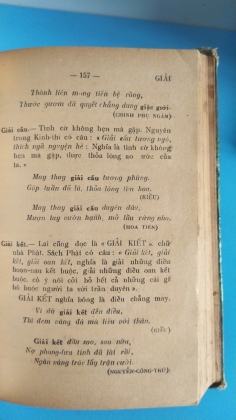 — 157 — GIẢI
Thành liền mong tiến bệ rồng,
Thước gươm đã quyết chẳng dung giặc giời.
(CHINH PHỤ NGÂM)
Giải cấu.— Tình cờ không hẹn mà gặp. Nguyên
trong Kinh-thi có câu : « Giải cấu tương ngộ,
thích ngã nguyện hề : Nghĩa là tình cờ không
hẹn mà gặp, được thỏa lòng ao ước của
ta. »
May thay giải cấu tương phùng,
Gặp tuần đố lá, thỏa lòng tìm hoa.
(KIỀU)
May thay giải cấu duyên đâu,
Mượn tay vườn hạnh, mở lầu rừng nho.
(HOA TIÊN)
Giải kết.— Lại cũng đọc là « GIẢI KIẾT » chữ
nhà Phật. Sách Phật có câu : « Giải kết, giải
kết, giải oan kết, nghĩa là giải những điều
buộc, giải những điều oan kết
được, có ý nói cởi bỏ hết cả những cái gì
bó buộc người ta với trần duyên ».
GIẢI KẾT nghĩa bóng là điều chẳng may.
Ví dù giải kết đến điều,
Thì đem vàng đá mà liều với thân.
(KIỀU)
Giải kết điều sao, sau nữa,
Nợ phong-lưu tính đã lãi rồi,
Ngàn vàng trác lấy trận cười.
(NGUYỄN-CÔNG-TRỨ)